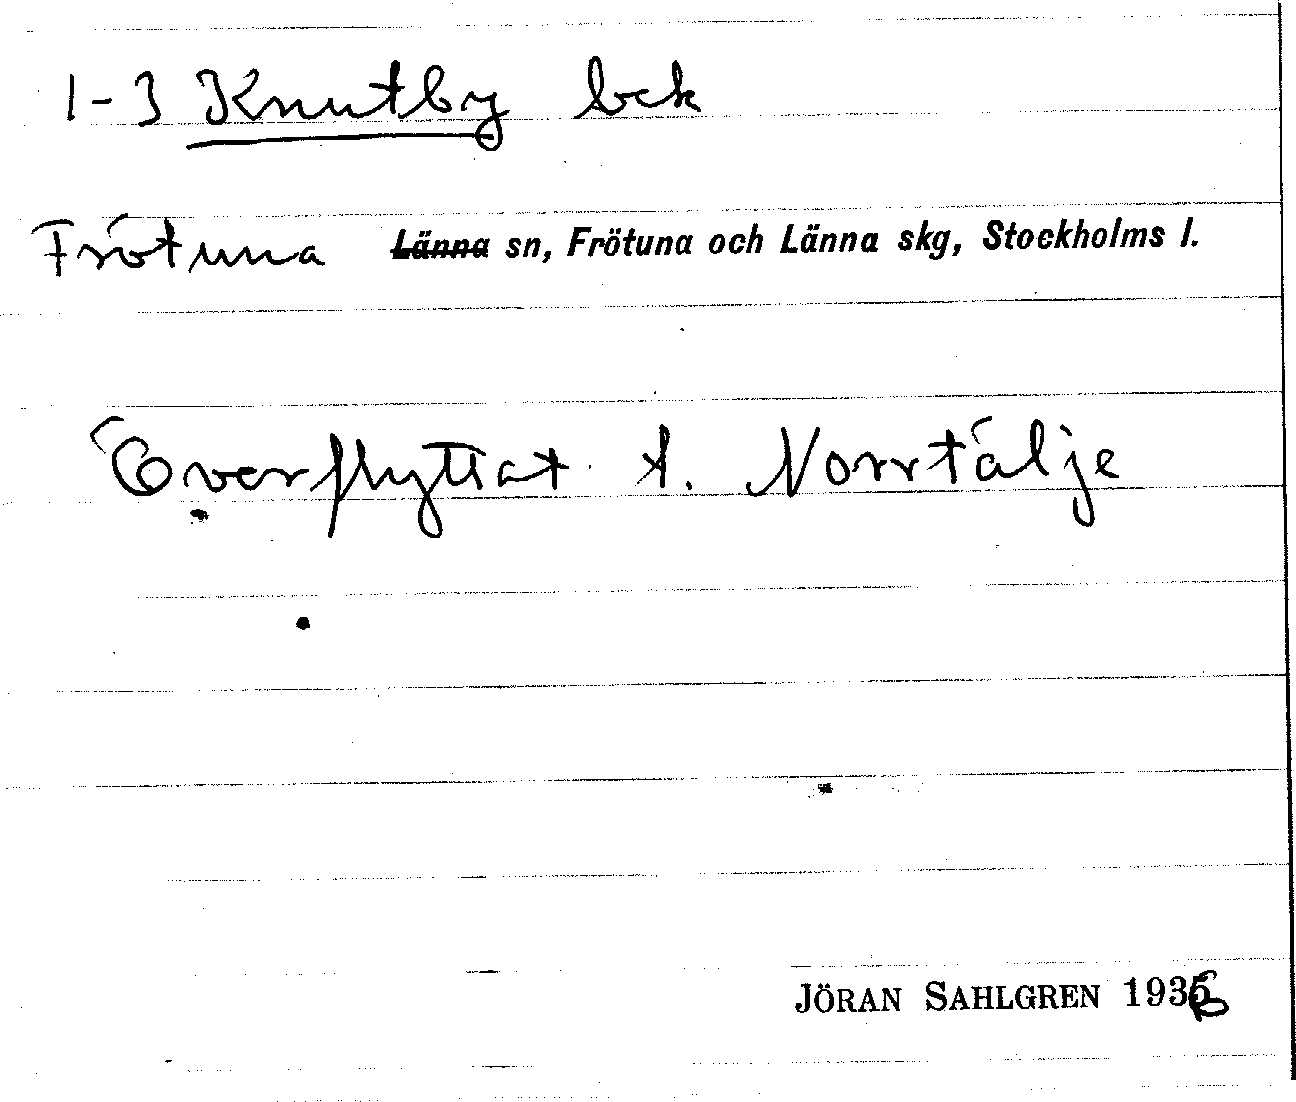 1-3 Knutby bek
Frötuna Länna sn, Frötuna och Länna skg, Stockholms l.
Överflyttat t. Norrtälje
JÖRAN SAHLGREN 1936